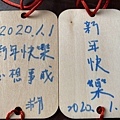 2020.1.1
新年快樂
心想事成
新
年
快
樂
2020.1.